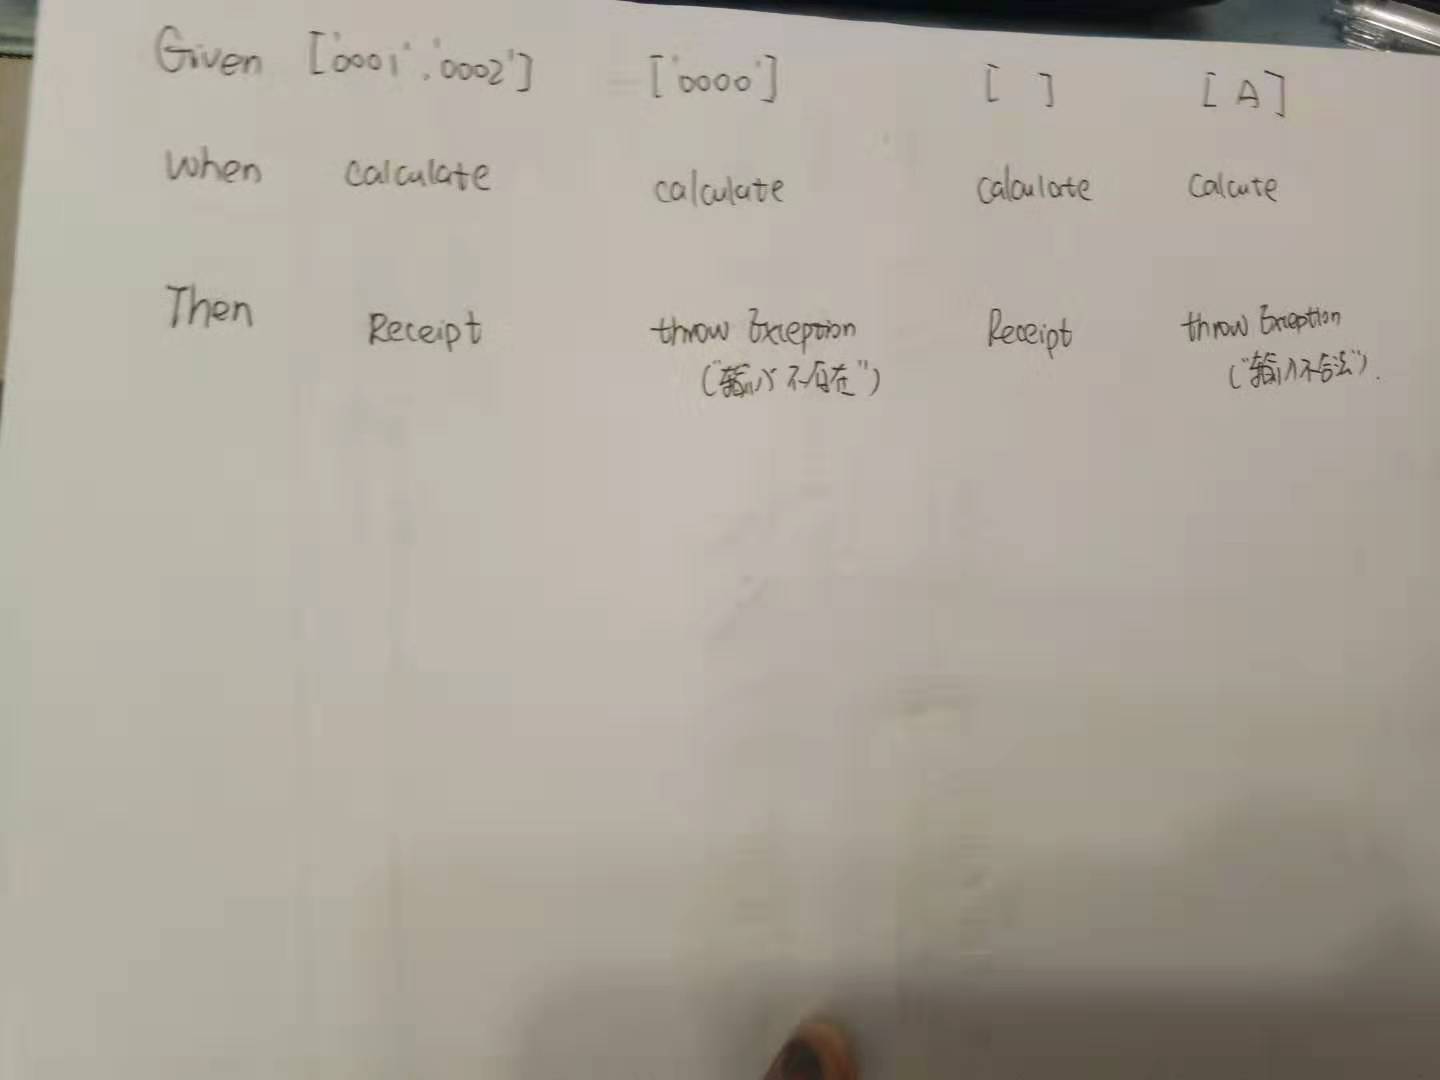 Given ['0001','0002'] ['0000'] [ ] [A]
When calculate calculate calculate Calcute
Then Receipt throw Exception Receipt throw Exception
("输入不存在") ("输入不合法").